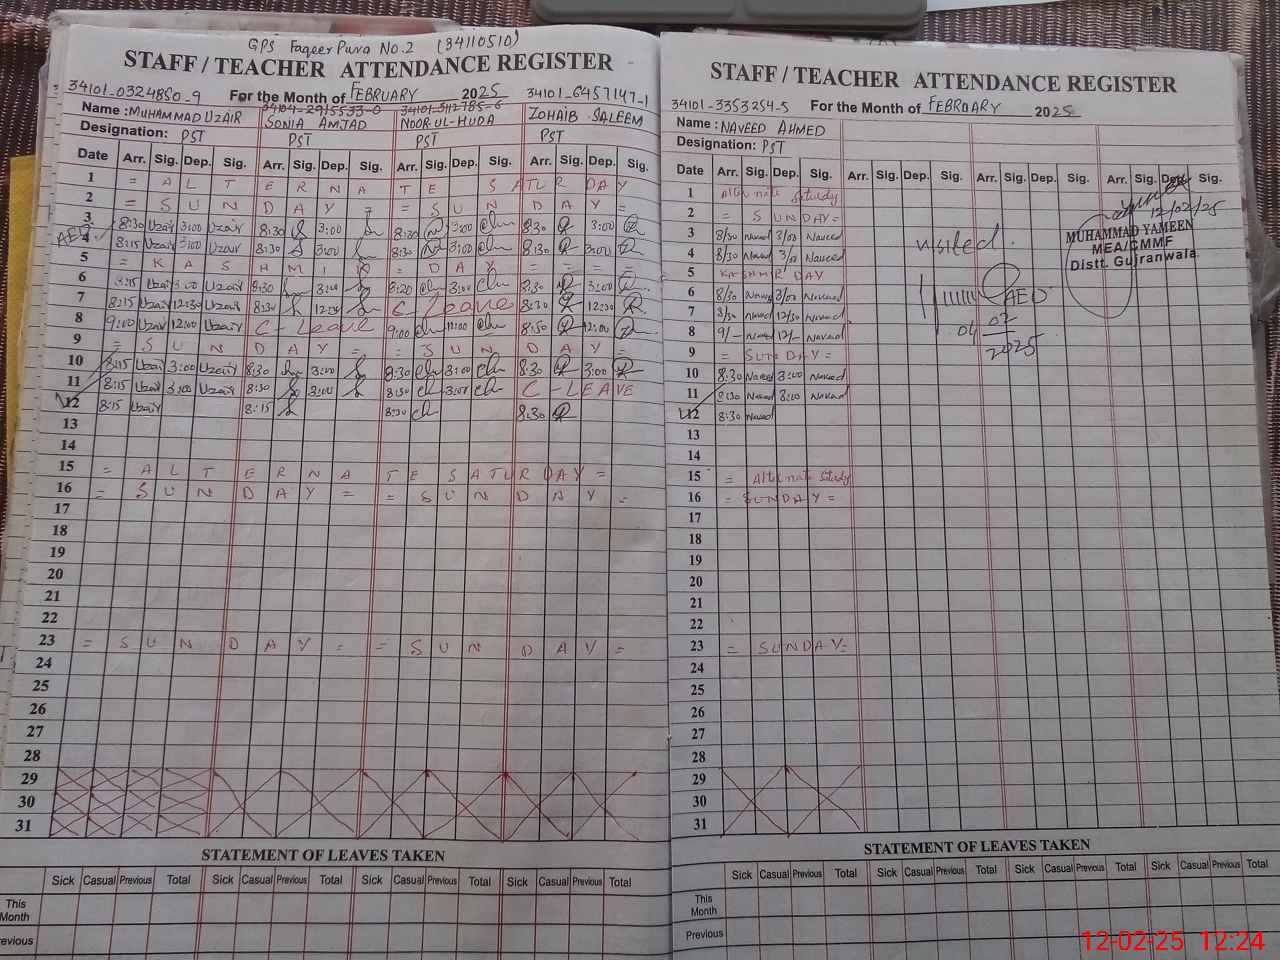 GPS Faqeer Pura No.2 (34110510)
STAFF / TEACHER ATTENDANCE REGISTER
34101-0324850-9 For the Month of FEBRUARY 2025 34101-6457147-1
Name : MUHAMMAD UZAIR SONIA AMJAD NOOR-UL-HUDA ZOHAIB SALEEM
Designation: PST PST PST PST
Date Arr. Sig. Dep. Sig. Arr. Sig. Dep. Sig. Arr. Sig. Dep. Sig. Arr. Sig. Dep. Sig.
1 = A L T E R N A T E S A T U R D A Y
2 = S U N D A Y = = S U N D A Y =
3 8:30 Uzair 3:00 Uzair 8:30 3:00 8:30 3:00 8:30 3:00
8:15 Uzair 3:00 Uzair 8:30 3:00 8:30 3:00 8:30 3:00
5 = K A S H M I R = D A Y = = = =
6 8:15 Uzair 3:00 Uzair 8:30 3:00 8:20 3:00 8:30 3:00
7 8:15 Uzair 12:30 Uzair 8:30 12:30 C-Leave 8:30 12:30
8 9:00 Uzair 12:00 Uzair C-Leave 9:00 12:00 8:50 12:00
9 = S U N D A Y = = S U N D A Y =
10 8:15 Uzair 3:00 Uzair 8:30 3:00 8:30 3:00 8:30 3:00
11 8:15 Uzair 3:00 Uzair 8:30 3:00 8:30 3:00 C-LEAVE
12 8:15 Uzair 8:15 8:30 8:30
13
14
15 = A L T E R N A T E S A T U R D A Y =
16 = S U N D A Y = = S U N D A Y =
17
18
19
20
21
22
23 = S U N D A Y = = S U N D A Y =
24
25
26
27
28
29
30
31
STATEMENT OF LEAVES TAKEN
Sick Casual Previous Total Sick Casual Previous Total Sick Casual Previous Total Sick Casual Previous Total
This Month
Previous
STAFF / TEACHER ATTENDANCE REGISTER
34101-3353254-5 For the Month of FEBROARY 2025
Name : NAVEED AHMED
Designation: PST
Date Arr. Sig. Dep. Sig. Arr. Sig. Dep. Sig. Arr. Sig. Dep. Sig. Arr. Sig. Dep. Sig.
1 Alternate Saturday
2 = S U N D A Y =
3 8/30 Naveed 3/00 Naveed
4 8/30 Naveed 3/0 Naveed
5 KASHMIR DAY
6 8/30 Naveed 3/00 Naveed
7 8/30 Naveed 12/30 Naveed
8 9/- Naveed 12/- Naveed
9 = SUNDAY =
10 8:30 Naveed 3:00 Naveed
11 8:30 Naveed 3:00 Naveed
12 8:30 Naveed
13
14
15 = Alternate Saturday
16 = SUNDAY =
17
18
19
20
21
22
23 = SUNDAY =
24
25
26
27
28
29
30
31
visited.
AEO
04
02
2025
12/02/25
MUHAMMAD YAMEEN
MEA/CMMF
Distt. Gujranwala
STATEMENT OF LEAVES TAKEN
Sick Casual Previous Total Sick Casual Previous Total Sick Casual Previous Total Sick Casual Previous Total
This Month
Previous
12-02-25 12:24